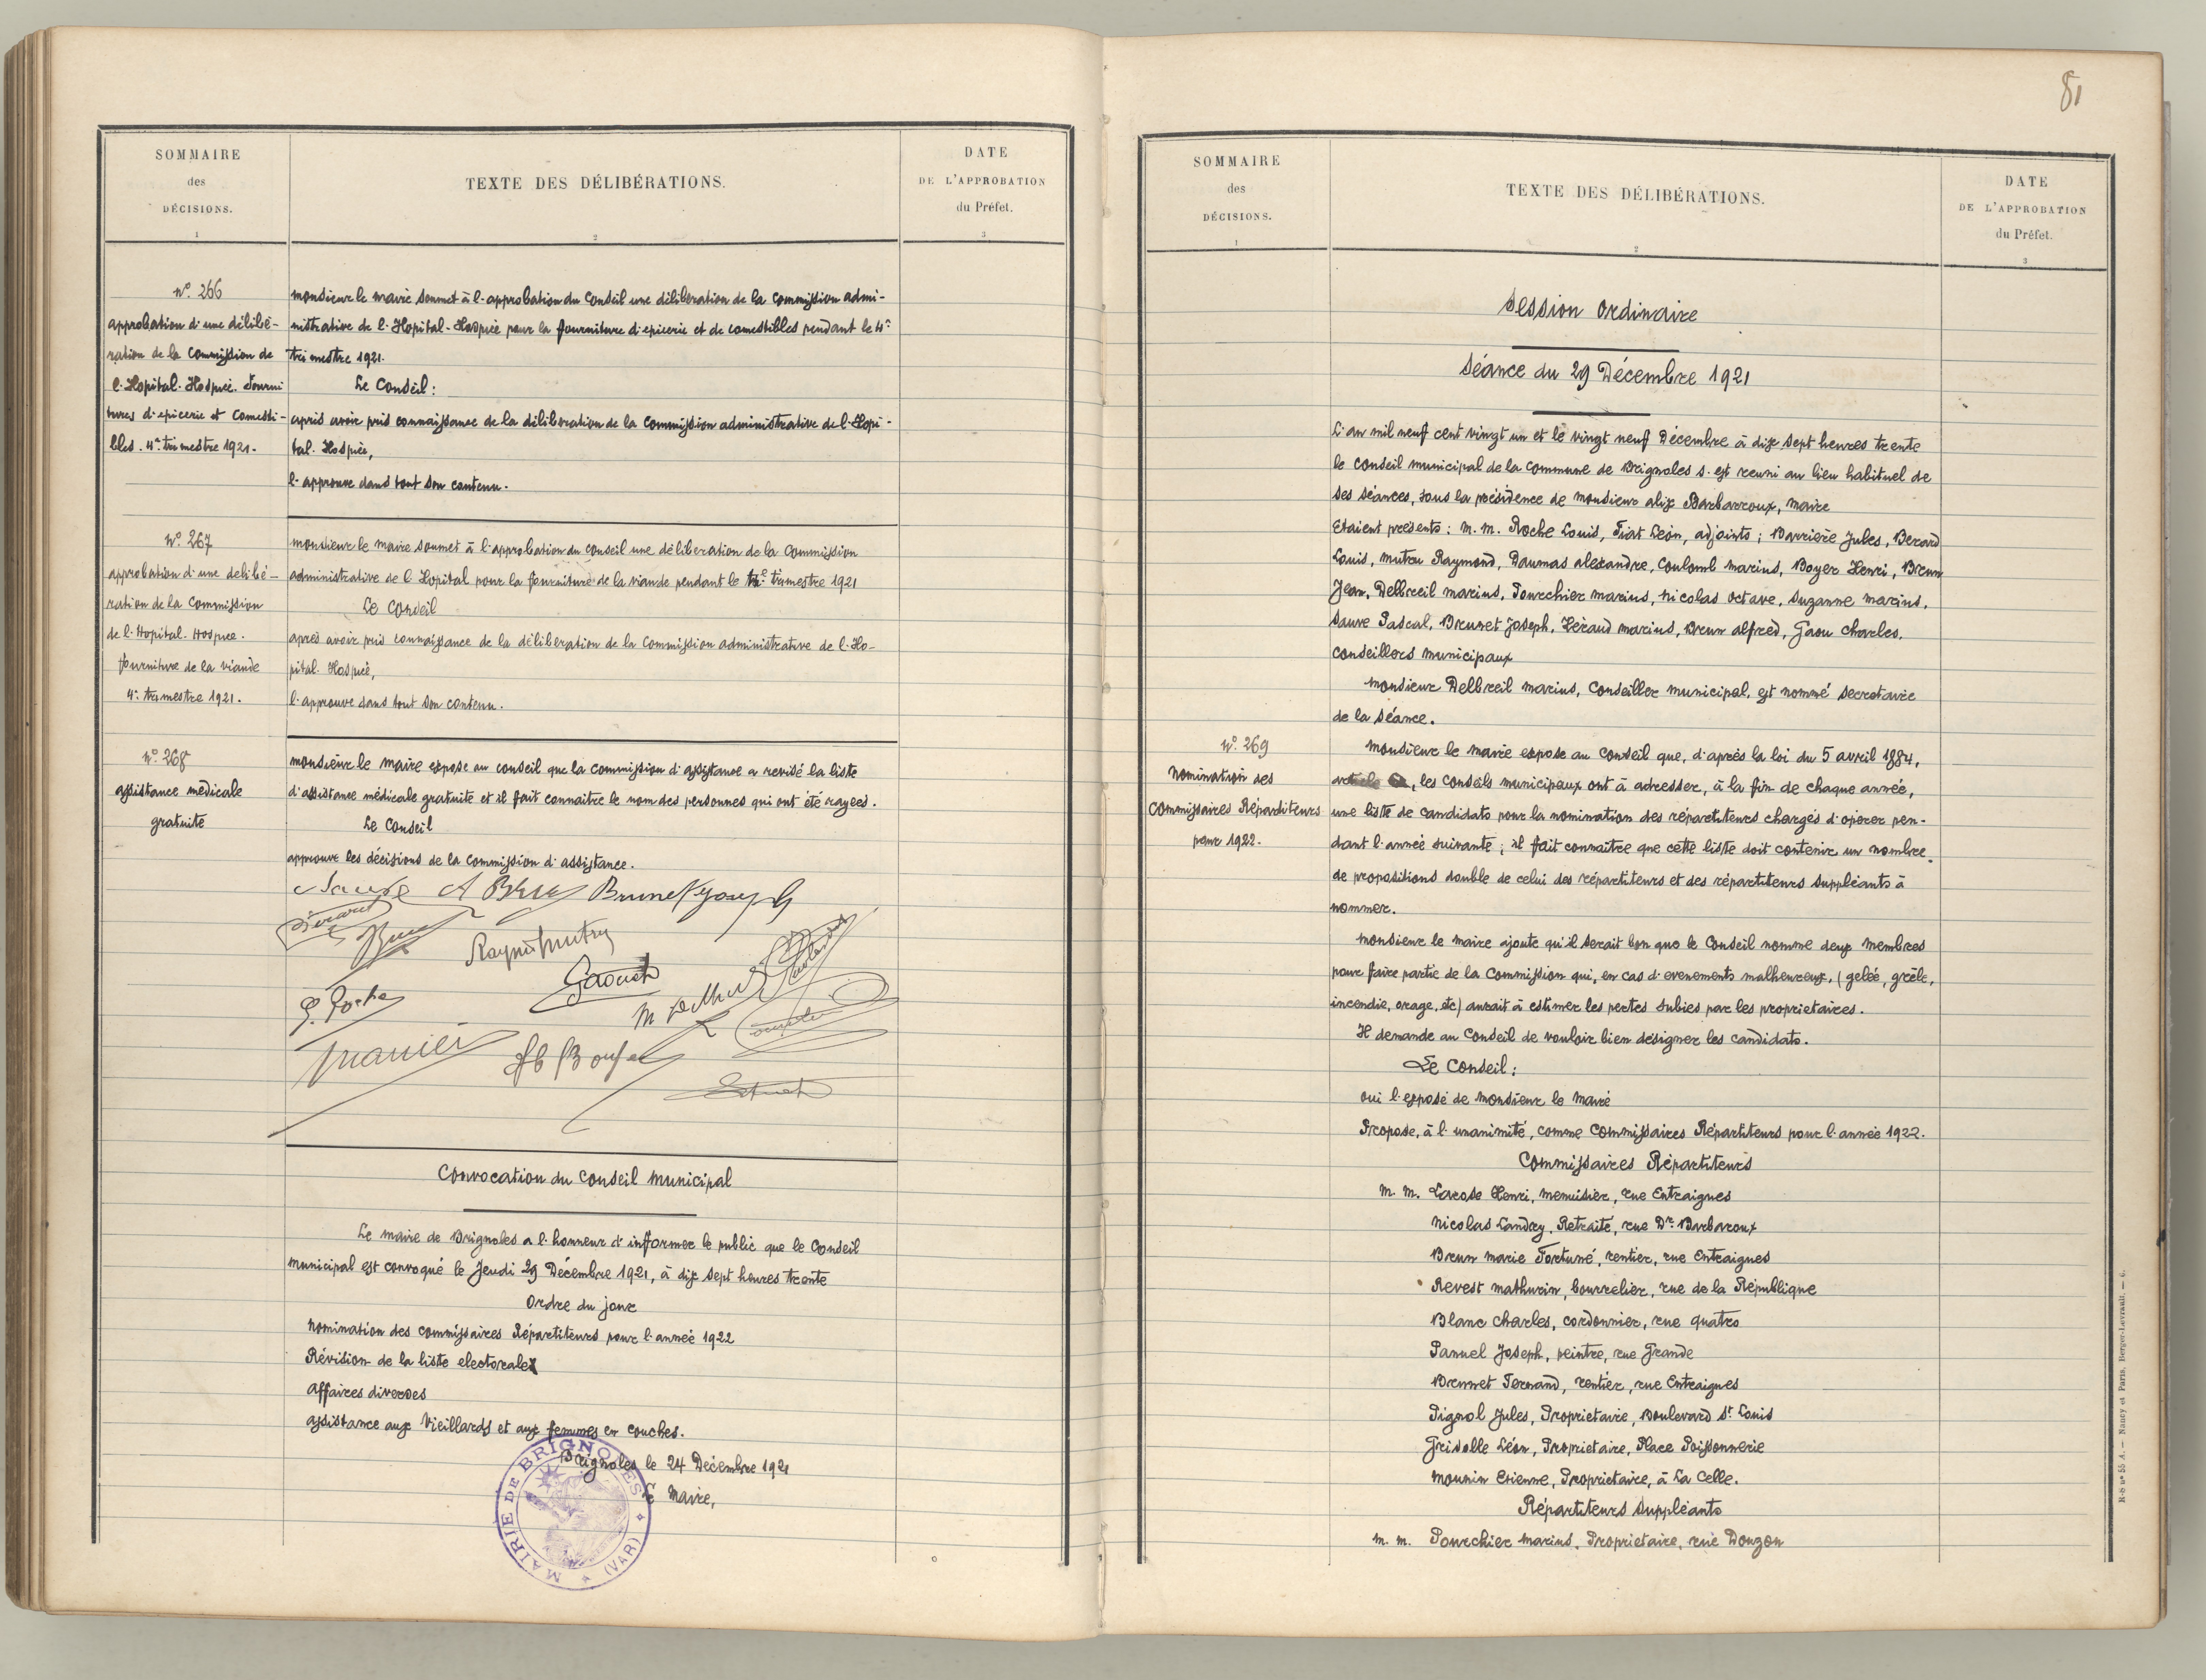 SOMMAIRE
des
DÉCISIONS.
1
TEXTE DES DÉLIBÉRATIONS.
2
DATE
DE L'APPROBATION
du Préfet.
3
N° 266
approbation d'une délibé-
ration de la Commission de
l'Hopital-Hospice. Fourni
tures d'epicerie et Comesti-
bles. 4e trimestre 1921.
monsieur le maire soumet à l'approbation du Conseil une déliberation de la Commission admi-
nistrative de l'Hopital-Hospice pour la fourniture d'epicerie et de comestibles pendant le 4e
trimestre 1921.
Le Conseil:
après avoir pris connaissance de la déliberation de la Commission administrative de l'Hopi-
tal-Hospice,
l'approuve dans tout son contenu.
N° 267
approbation d'une delibé-
ration de la Commission
de l'Hopital-Hospice.
fourniture de la viande
4e trimestre 1921.
monsieur le maire soumet à l'approbation du conseil une déliberation de la Commission
administrative de l'Hopital pour la fourniture de la viande pendant le trimestre 1921
Le Conseil
après avoir pris connaissance de la déliberation de la Commission administrative de l'Ho-
pital-Hospice,
l'approuve dans tout son contenu.
N° 268
assistance médicale
gratuite
monsieur le maire expose au conseil que la commission d'assistance a revisé la liste
d'assistance médicale gratuite et il fait connaitre le nom des personnes qui ont été rayées.
Le Conseil
approuve les décisions de la Commission d'assistance.
Sauve A Brun Brunet Joseph
Raymd Mutru
Gaou Ch
H Boyer
Convocation du Conseil Municipal
Le maire de Brignoles a l'honneur d'informer le public que le Conseil
municipal est convoqué le Jeudi 29 Décembre 1921, à dix sept heures trente
Ordre du jour
Nomination des commissaires Répartiteurs pour l'année 1922
Révision de la liste electorale
Affaires diverses
assistance aux Vieillards et aux femmes en couches.
Brignoles le 24 Decembre 1921
Le Maire,
MAIRIE DE BRIGNOLES (VAR)
81
SOMMAIRE
des
DÉCISIONS.
1
TEXTE DES DÉLIBÉRATIONS.
2
DATE
DE L'APPROBATION
du Préfet.
3
Session Ordinaire
Séance du 29 Décembre 1921
L'an mil neuf cent vingt un et le vingt neuf Décembre à dix sept heures trente
le conseil municipal de la commune de Brignoles s'est reuni au lieu habituel de
ses séances, sous la présidence de monsieur alix Barbarroux, maire
Etaient présents: M.M. Roche Louis, Fiat Léon, adjoints; Barrière Jules, Berard
Louis, Mutru Raymond, Daumas alexandre, Coulomb marius, Boyer Henri, Brun
Jean, Delbreil marius, Pourchier marius, Nicolas octave, Suzanne marius,
Sauve Pascal, Brunet Joseph, Héraud marius, Brun alfred, Gaou Charles,
conseillers municipaux
Monsieur Delbreil marius, Conseiller municipal, est nommé secretaire
de la séance.
N° 269
Nomination des
Commissaires Répartiteurs
pour 1922.
Monsieur le maire expose au conseil que, d'après la loi du 5 avril 1884,
article , les conseils municipaux ont à adresser, à la fin de chaque année,
une liste de candidats pour la nomination des répartiteurs chargés d'opérer pen-
dant l'année suivante; il fait connaître que cette liste doit contenir un nombre
de propositions double de celui des répartiteurs et des répartiteurs suppléants à
nommer.
Monsieur le maire ajoute qu'il serait bon que le Conseil nomme deux membres
pour faire partie de la Commission qui, en cas d'evenements malheureux, (gelée, grêle,
incendie, orage, etc) aurait à estimer les pertes subies par les proprietaires.
Il demande au Conseil de vouloir bien designer les candidats.
Le Conseil:
oui l'exposé de Monsieur le Maire
Propose, à l'unanimité, comme Commissaires Répartiteurs pour l'année 1922.
Commissaires Répartiteurs
M.M. Larose Henri, menuisier, rue Entraigues
Nicolas Landry, Retraité, rue Dr Barbaroux
Brun marie Fortuné, rentier, rue Entraigues
Revest mathurin, bourrelier, rue de la République
Blanc charles, cordonnier, rue quatro
Panuel Joseph, peintre, rue Grande
Brunet Fernand, rentier, rue Entraigues
Pignol Jules, Proprietaire, Boulevard St Louis
Grisolle Léon, Proprietaire, Place Poissonnerie
Mounin Etienne, Proprietaire, à La Celle.
Répartiteurs Suppléants
M.M. Pourchier Marius, Proprietaire, rue Douzon
R-S n° 55 A. — Nancy et Paris, Berger-Levrault. — 6.